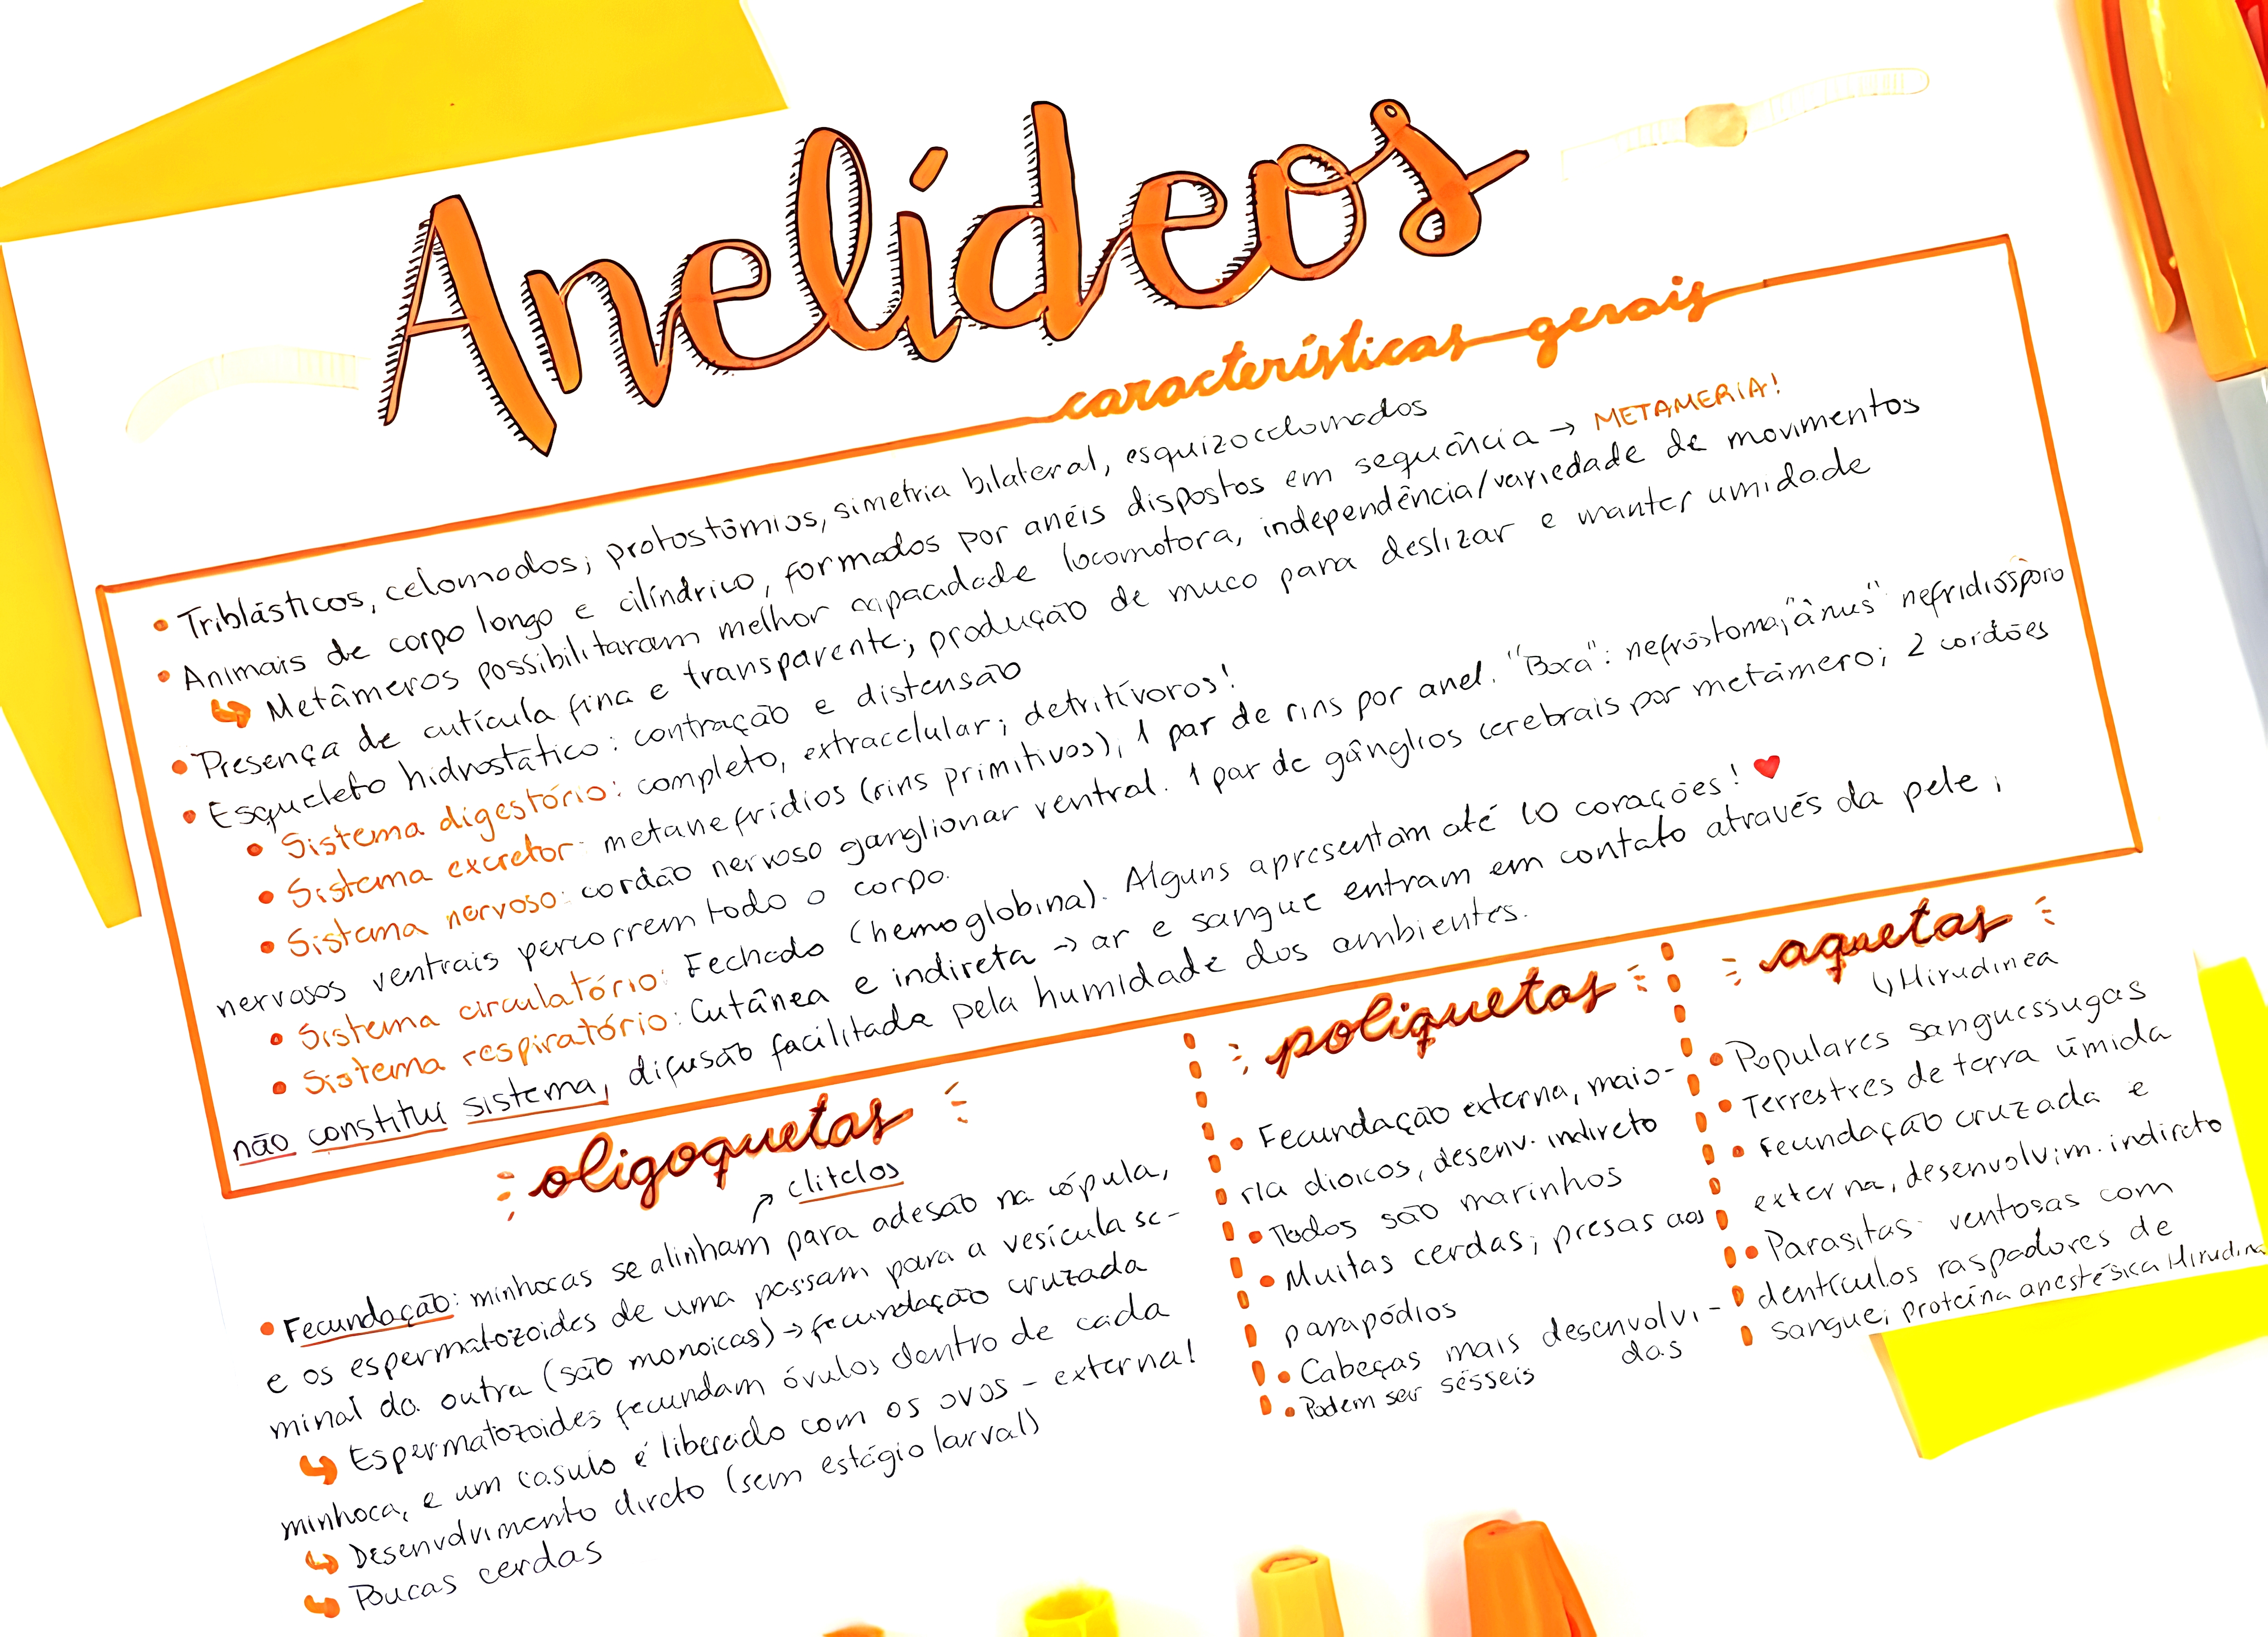 Anelídeos
características gerais
• Triblásticos, celomados; protostômios, simetria bilateral, esquizocelomados
• Animais de corpo longo e cilíndrico, formados por anéis dispostos em sequência → METAMERIA!
↳ Metâmeros possibilitaram melhor capacidade locomotora, independência/variedade de movimentos
• Presença de cutícula fina e transparente; produção de muco para deslizar e manter umidade
• Esqueleto hidrostático: contração e distensão
• Sistema digestório: completo, extracelular; detritívoros!
• Sistema excretor: metanefrídios (rins primitivos), 1 par de rins por anel. "Boca": nefróstoma; "ânus" nefridiósporo
• Sistema nervoso: cordão nervoso ganglionar ventral. 1 par de gânglios cerebrais por metâmero; 2 cordões
nervosos ventrais percorrem todo o corpo.
• Sistema circulatório: Fechado (hemoglobina). Alguns apresentam até 10 corações! ♥
• Sistema respiratório: Cutânea e indireta → ar e sangue entram em contato através da pele;
não constitui sistema, difusão facilitada pela humidade dos ambientes.
oligoquetas
↗ clitelos
• Fecundação: minhocas se alinham para adesão na cópula,
e os espermatozoides de uma passam para a vesícula se-
minal da outra (são monoicas) → fecundação cruzada
↳ Espermatozoides fecundam óvulos dentro de cada
minhoca, e um casulo é liberado com os ovos - externa!
↳ Desenvolvimento direto (sem estágio larval)
↳ Poucas cerdas
poliquetas
• Fecundação externa, maio-
ria dioicos, desenv. indireto
• Todos são marinhos
• Muitas cerdas; presas aos
parapódios
• Cabeças mais desenvolvi-
das
• Podem ser sésseis
aquetas
↳ Hirudinea
• Populares sanguessugas
• Terrestres de terra úmida
• Fecundação cruzada e
externa, desenvolvim. indireto
• Parasitas: ventosas com
dentículos raspadores de
sangue; proteína anestésica Hirudina